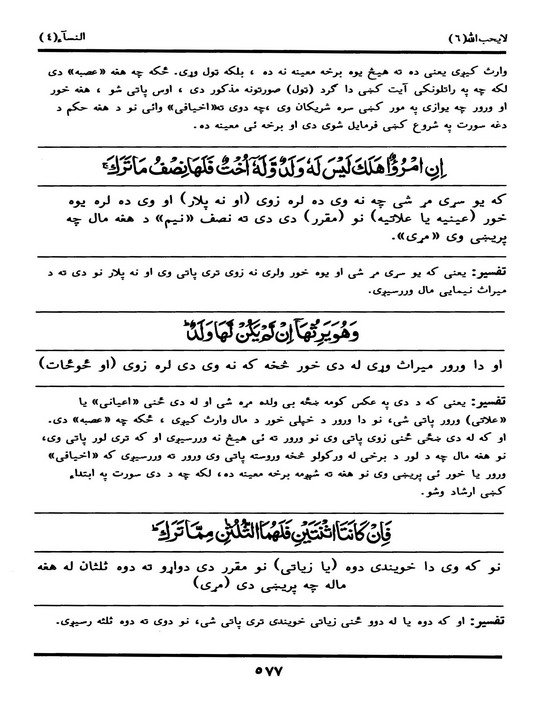 لايحب الله (٦) النسآء (٤)
وارث کیږي یعنی ده ته هیڅ یوه برخه معینه نه ده ، بلکه تول وړي. ځکه چه هغه «عصبه» دی
لکه چه په راتلونکی آیت کښی دا گرد (تول) صورتونه مذکور دی ، اوس پاتی شو ، هغه خور
او ورور چه یوازی په مور کښی سره شریکان وی ،چه دوی ته«اخیافی» وائی نو د هغه حکم د
دغه سورت په شروع کښی فرمایل شوی دی او برخه ئی معینه ده.
اِنِ امْرُؤٌا هَلَكَ لَيْسَ لَهٗ وَلَدٌ وَّلَهٗٓ اُخْتٌ فَلَهَا نِصْفُ مَا تَرَكَ ۚ
که یو سړی مړ شی چه نه وی ده لره زوی (او نه پلار) او وی ده لره یوه
خور (عینیه یا علاتیه) نو (مقرر) دی دی ته نصف «نیم» د هغه مال چه
پریښی وی «مړی».
تفسیر: یعنی که یو سړی مړ شی او یوه خور ولری نه زوی تری پاتی وی او نه پلار نو دی ته د
میراث نیمایی مال وررسیږی.
وَهُوَ يَرِثُهَآ اِنْ لَّمْ يَكُنْ لَّهَا وَلَدٌ ۭ
او دا ورور میراث وړی له دی خور څخه که نه وی دی لره زوی (او ځوځات)
تفسیر: یعنی که د دی په عکس کومه ښځه بی ولده مړه شی او له دی ځنی «اعیانی» یا
«علاتی) ورور پاتی شی، نو دا ورور د خپلی خور د مال وارث کیږی ، ځکه چه «عصبه» دی.
او که له دی ښځی ځنی زوی پاتی وی نو ورور ته ئی هیڅ نه وررسیږی او که تری لور پاتی وی،
نو هغه مال چه د لور د برخی له ورکولو څخه وروسته پاتی وی ورور ته وررسیږی که «اخیافی»
ورور یا خور ئی پریښی وی نو هغه ته شپږمه برخه معینه ده، لکه چه د دی سورت په ابتداء
کښی ارشاد وشو.
فَاِنْ كَانَتَا اثْنَتَيْنِ فَلَهُمَا الثُّلُثٰنِ مِمَّا تَرَكَ ۭ
نو که وی دا خویندی دوه (یا زیاتی) نو مقرر دی دواړو ته دوه ثلثان له هغه
ماله چه پریښی دی (مړی)
تفسیر: او که دوه یا له دوو ځنی زیاتی خویندی تری پاتی شی، نو دوی ته دوه ثلثه رسیږی.
٥٧٧